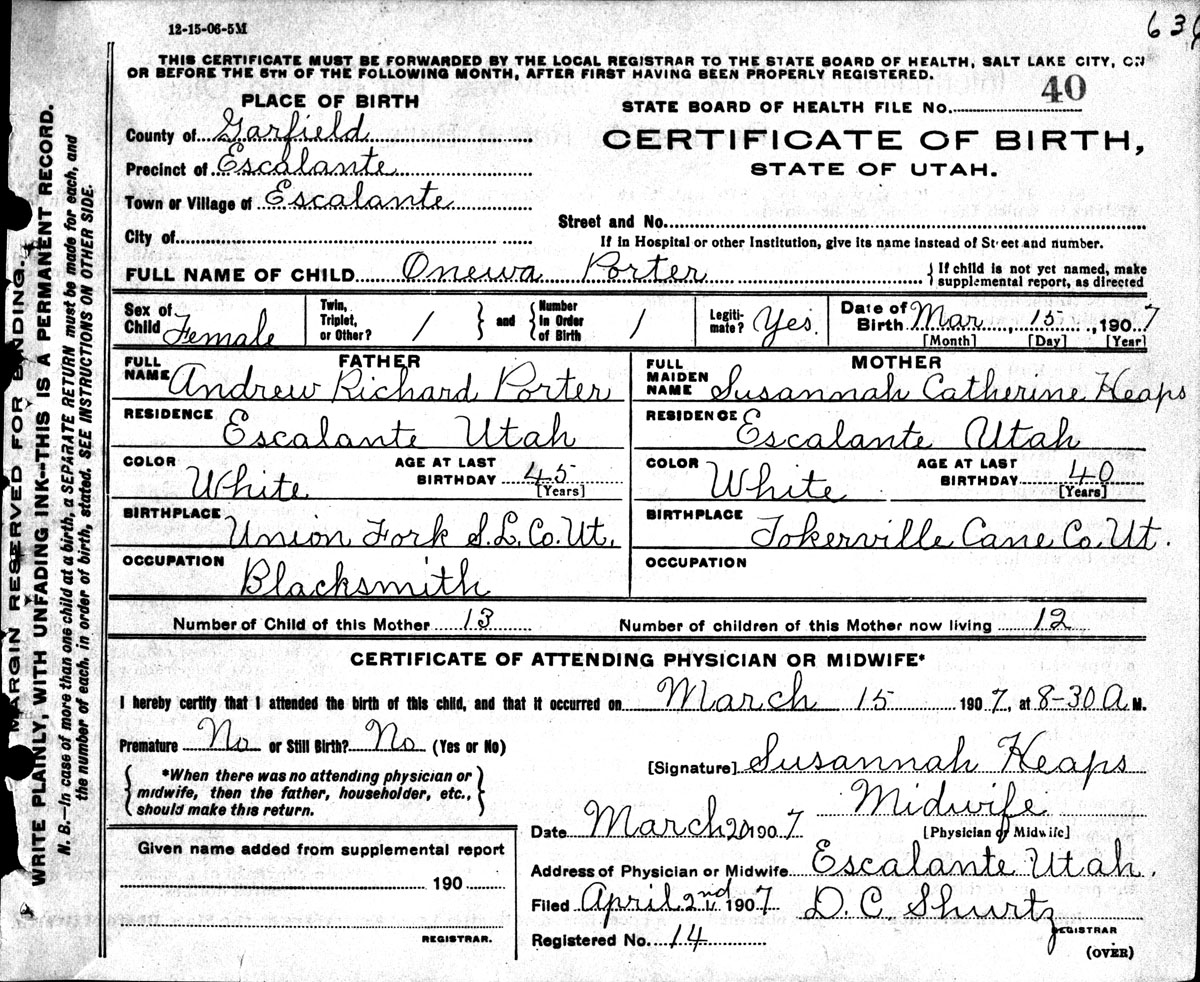 12-15-06-5M
THIS CERTIFICATE MUST BE FORWARDED BY THE LOCAL REGISTRAR TO THE STATE BOARD OF HEALTH, SALT LAKE CITY, ON
OR BEFORE THE 5TH OF THE FOLLOWING MONTH, AFTER FIRST HAVING BEEN PROPERLY REGISTERED.
PLACE OF BIRTH
STATE BOARD OF HEALTH FILE NO. 40
County of Garfield
CERTIFICATE OF BIRTH,
Precinct of Escalante
STATE OF UTAH.
Town or Village of Escalante
Street and No.
City of
If in Hospital or other Institution, give its name instead of Street and number.
FULL NAME OF CHILD Onewa Porter
{ If child is not yet named, make supplemental report, as directed
Sex of Child Female
Twin, Triplet, or Other? / } and { Number in Order of Birth /
Legitimate? Yes.
Date of Birth Mar 15, 1907
[Month] [Day] [Year]
FATHER
FULL NAME Andrew Richard Porter
RESIDENCE Escalante Utah
COLOR White AGE AT LAST BIRTHDAY 45 [Years]
BIRTHPLACE Union Fork S.L. Co. Ut.
OCCUPATION Blacksmith
MOTHER
FULL MAIDEN NAME Susannah Catherine Heaps
RESIDENCE Escalante Utah
COLOR White AGE AT LAST BIRTHDAY 40 [Years]
BIRTHPLACE Tokerville Cane Co. Ut.
OCCUPATION
Number of Child of this Mother 13 Number of children of this Mother now living 12
CERTIFICATE OF ATTENDING PHYSICIAN OR MIDWIFE*
I hereby certify that I attended the birth of this child, and that it occurred on March 15 1907, at 8-30 A M.
Premature No or Still Birth? No (Yes or No)
[Signature] Susannah Heaps
{ *When there was no attending physician or
midwife, then the father, householder, etc.,
should make this return. }
Midwife
[Physician or Midwife]
Date March 20 1907
Address of Physician or Midwife Escalante Utah.
Filed April 2nd 1907 D. C. Shurtz
REGISTRAR
Registered No. 14
(OVER)
Given name added from supplemental report
190
REGISTRAR.
MARGIN RESERVED FOR BINDING.
WRITE PLAINLY, WITH UNFADING INK--THIS IS A PERMANENT RECORD.
N. B.—In case of more than one child at a birth, a SEPARATE RETURN must be made for each, and
the number of each, in order of birth, stated. SEE INSTRUCTIONS ON OTHER SIDE.